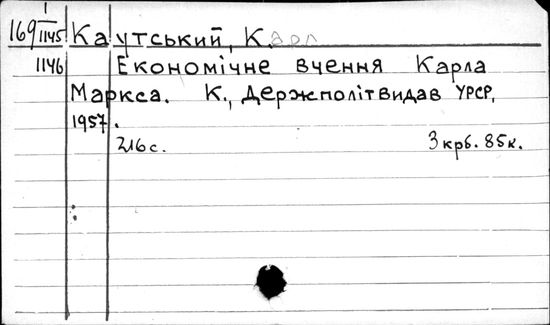 169 1/1145 Каутський, К.арл
1146 Економічне вчення Карла
Маркса. К., Держполітвидав УРСР,
1957.
216с. 3 крб. 85к.